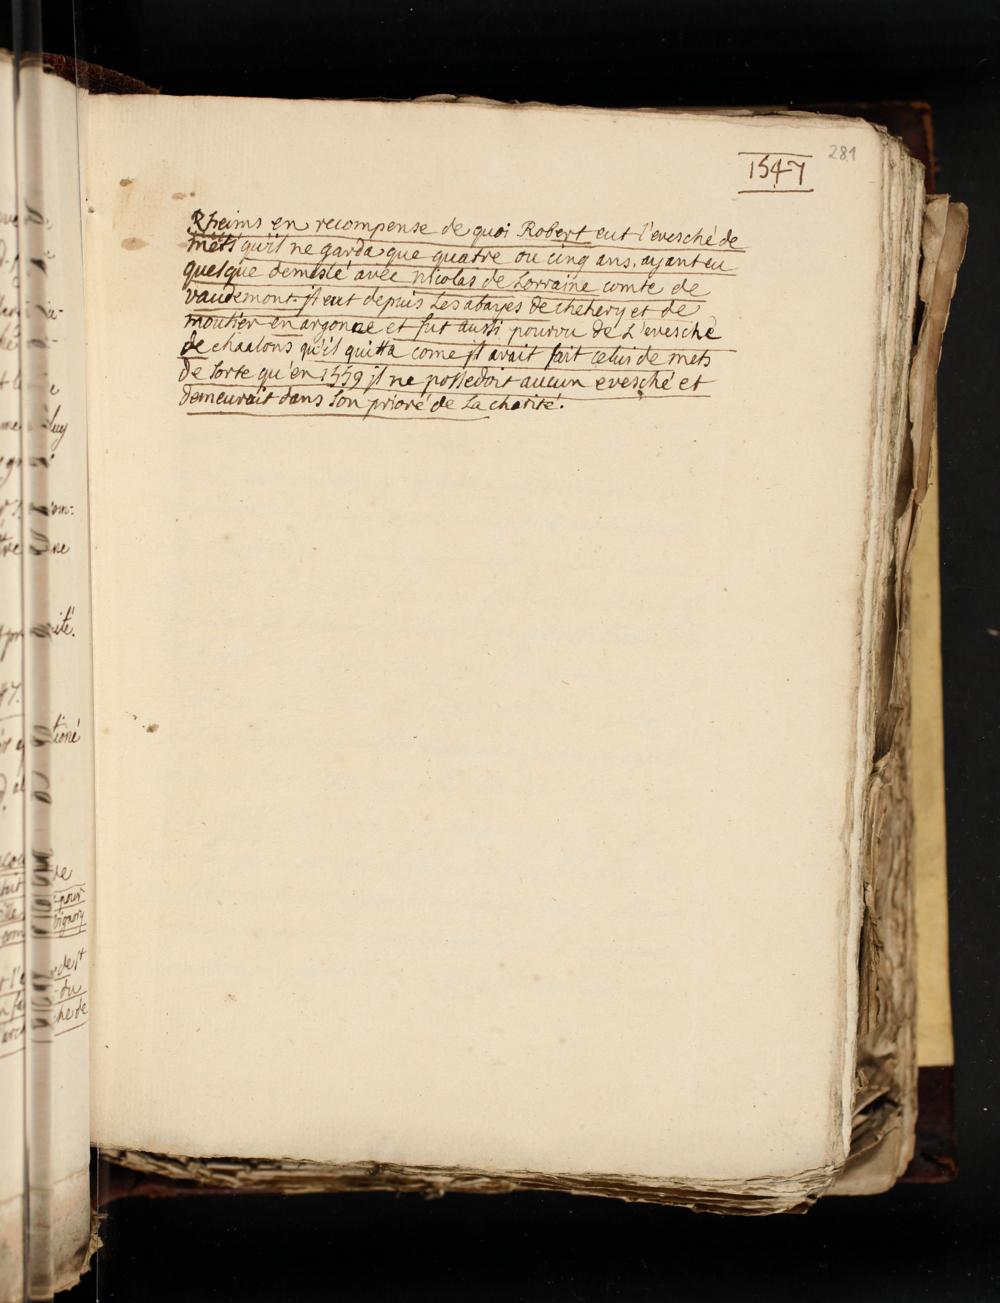 1547
281
Rheims en recompense de quoi Robert eut l'evesché de
mets qu'il ne garda que quatre ou cinq ans, ayant eu
quelque demeslé avec nicolas de Lorraine comte de
vaudemont. jl eut depuis Les abayes de chehery et de
moutier en argonne et fut aussi pourvu de L'evesché
de chaalons qu'il quitta come jl avait fait celui de mets
de sorte qu'en 1559 jl ne possedoit aucun evesché et
demeurait dans son prioré de La charité.